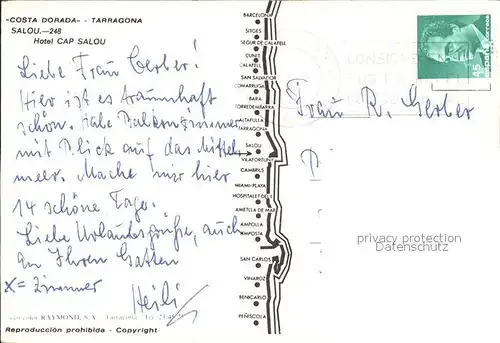 "COSTA DORADA" - TARRAGONA
SALOU.—248
Hotel CAP SALOU
Liebe Frau Gerber!
Hier ist es traumhaft
schön. Habe Balkonzimmer
mit Blick auf das Mittel-
meer. Mache mir hier
14 schöne Tage.
Liebe Urlaubsgrüße, auch
an Ihren Gatten
X = Zimmer
Heidi
RAYMOND, S.A. Tarragona
Reproducción prohibida - Copyright
BARCELONA
SITGES
SEGUR DE CALAFELL
CUNIT
CALAFELL
SAN SALVADOR
COMARRUGA
BARA
TORREDEMBARRA
ALTAFULLA
TARRAGONA
SALOU
VILAFORTUNY
CAMBRILS
MIAMI-PLAYA
HOSPITALET DEL I.
AMETLLA DE MAR
AMPOLLA
AMPOSTA
SAN CARLOS
VINAROZ
BENICARLO
PEÑISCOLA
45
Frau R. Gerber
privacy protection
Datenschutz